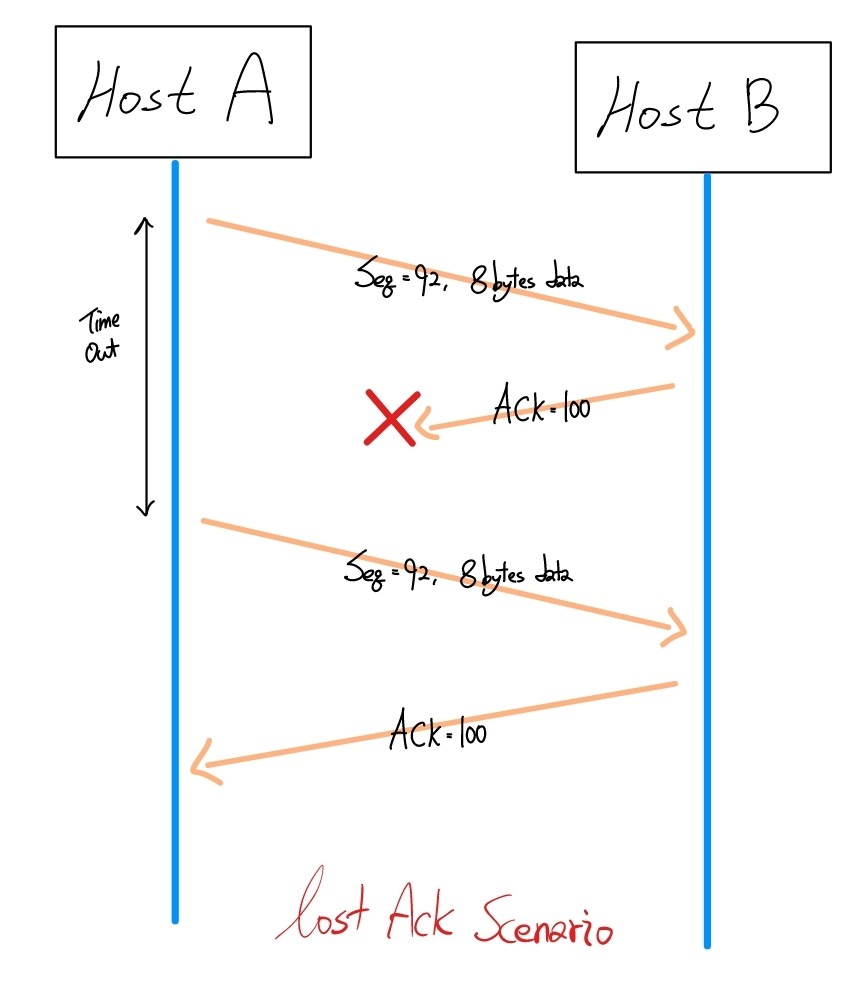 Host A
Host B
Seq = 92, 8 bytes data
Time
Out
ACK = 100
Seq = 92, 8 bytes data
ACK = 100
Lost Ack Scenario